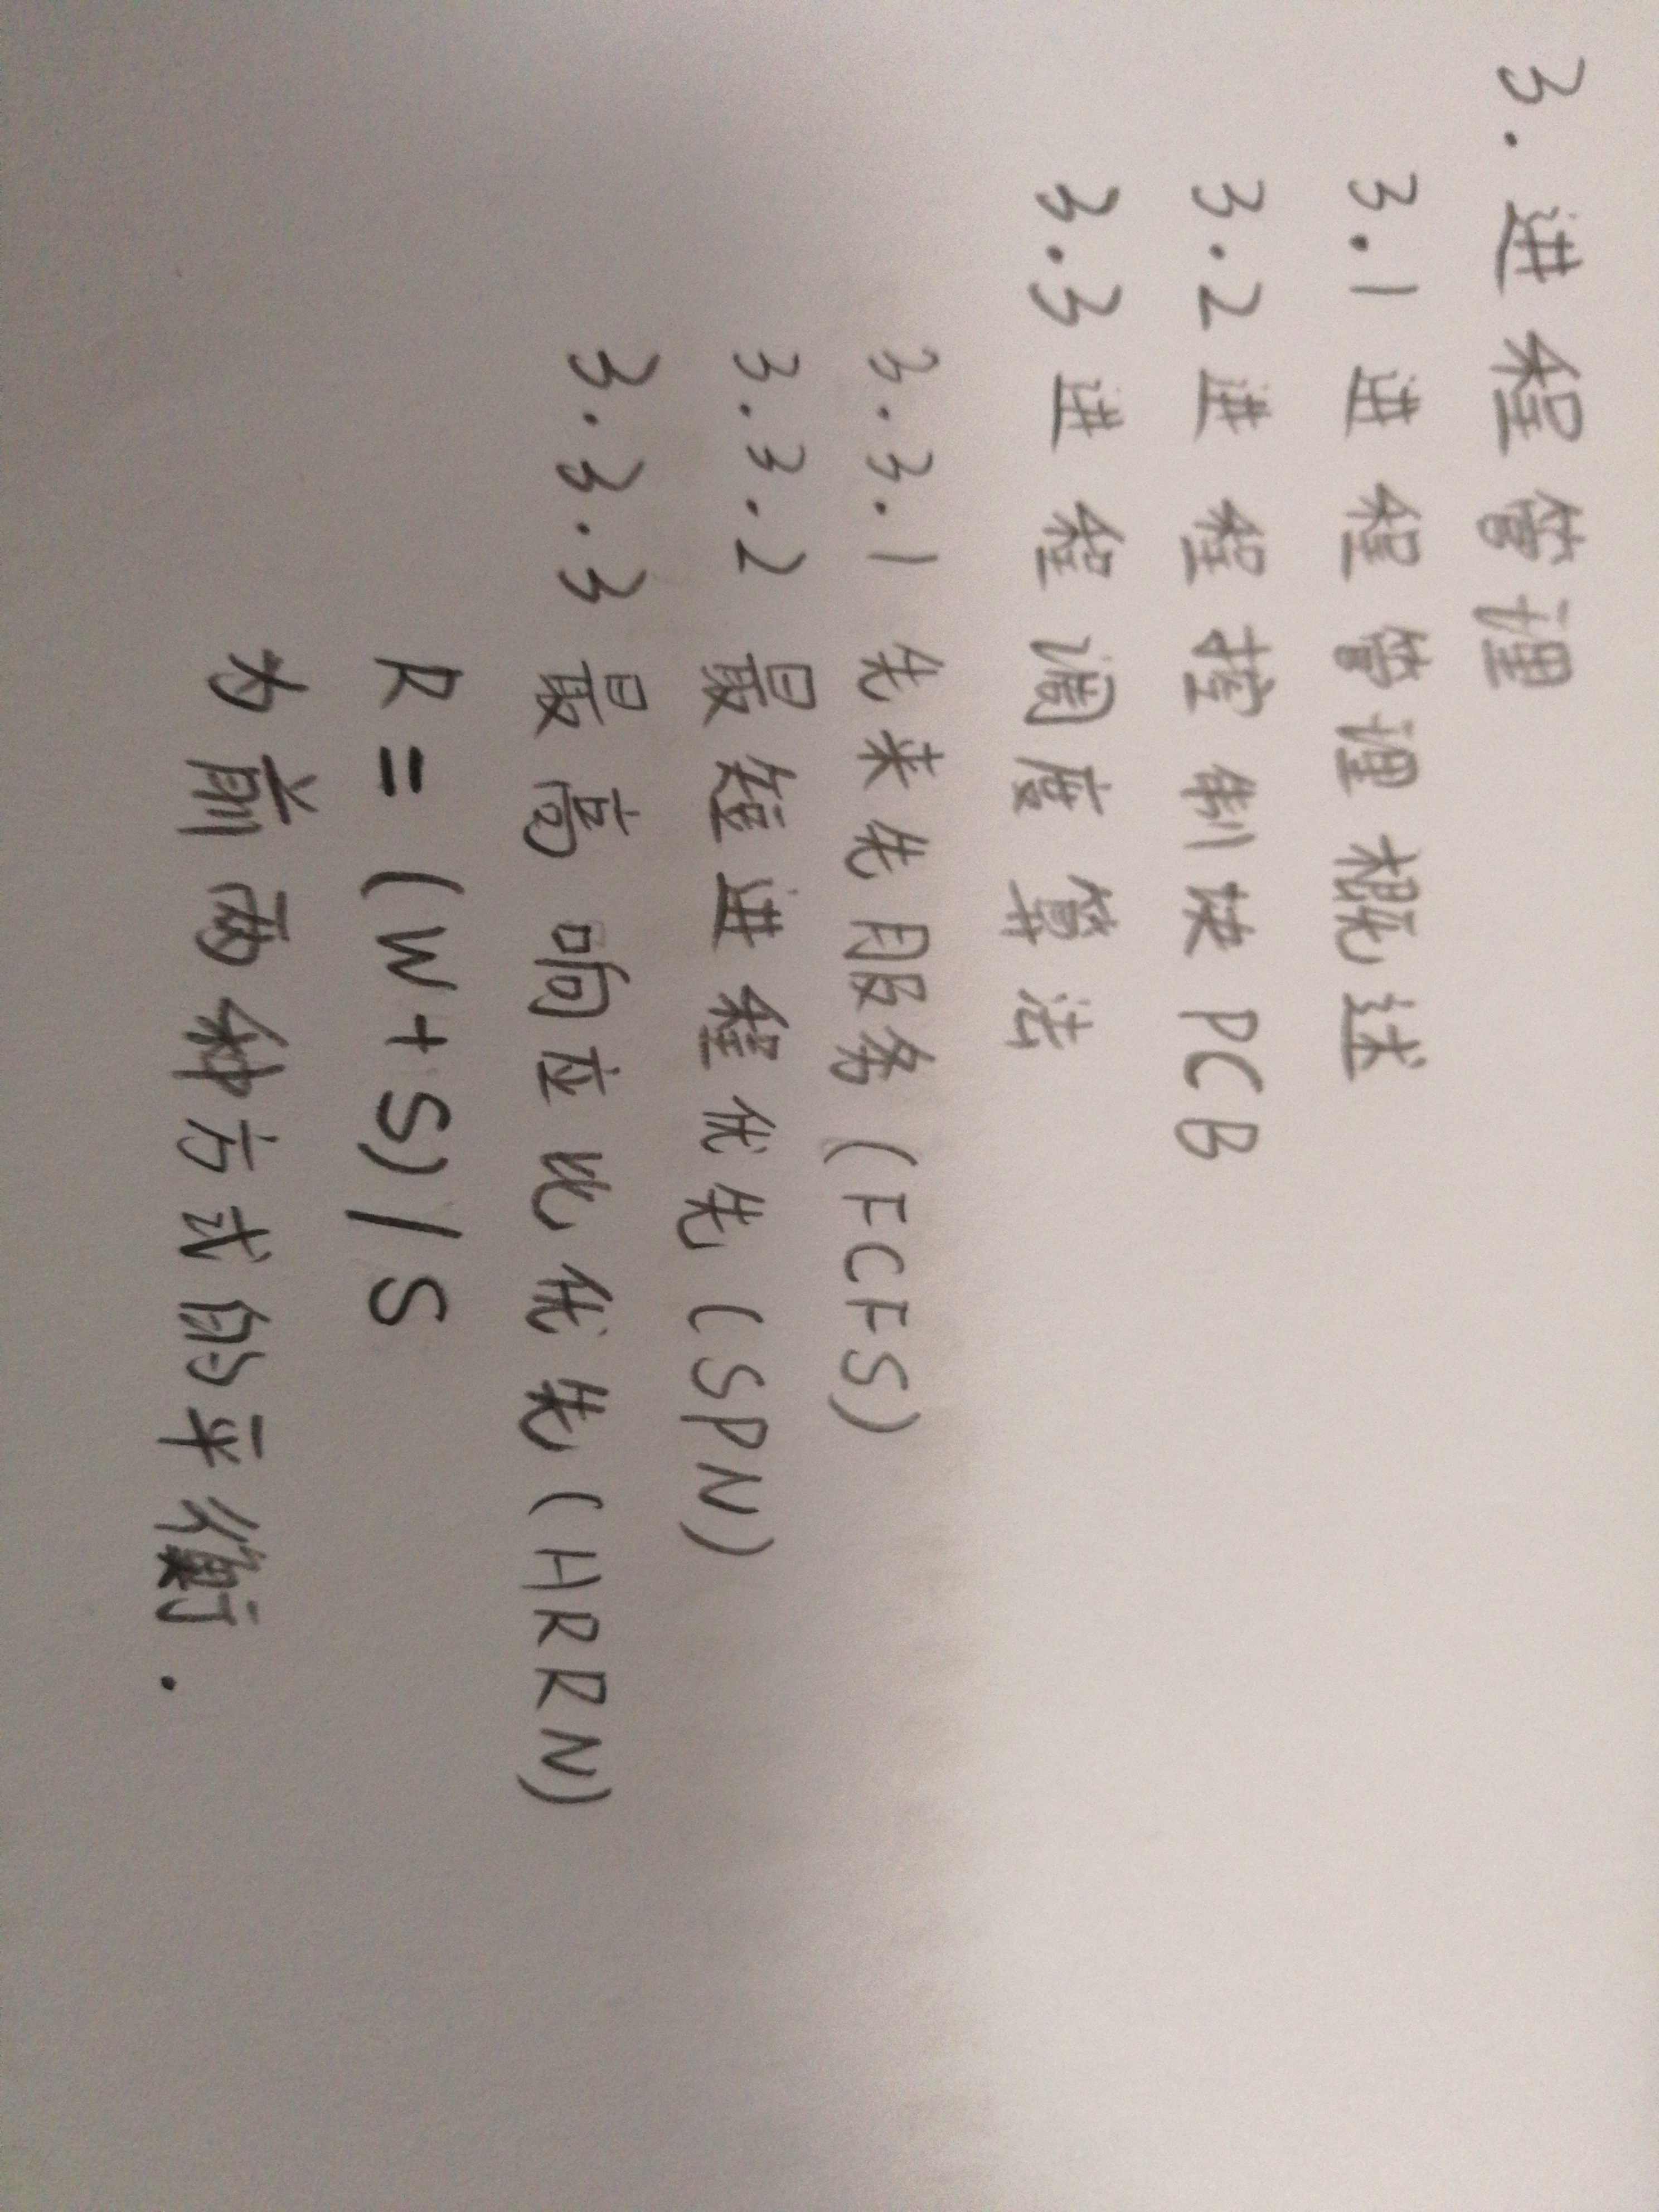 3.进程管理
3.1进程管理概述
3.2进程控制块PCB
3.3进程调度算法
3.3.1先来先服务(FCFS)
3.3.2最短进程优先(SPN)
3.3.3最高响应比优先(HRRN)
R=(W+S)/S
为前两种方式的平衡.